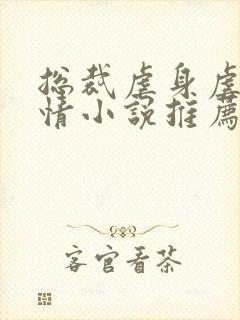 总裁虐身虐
情小說推薦
客官看茶